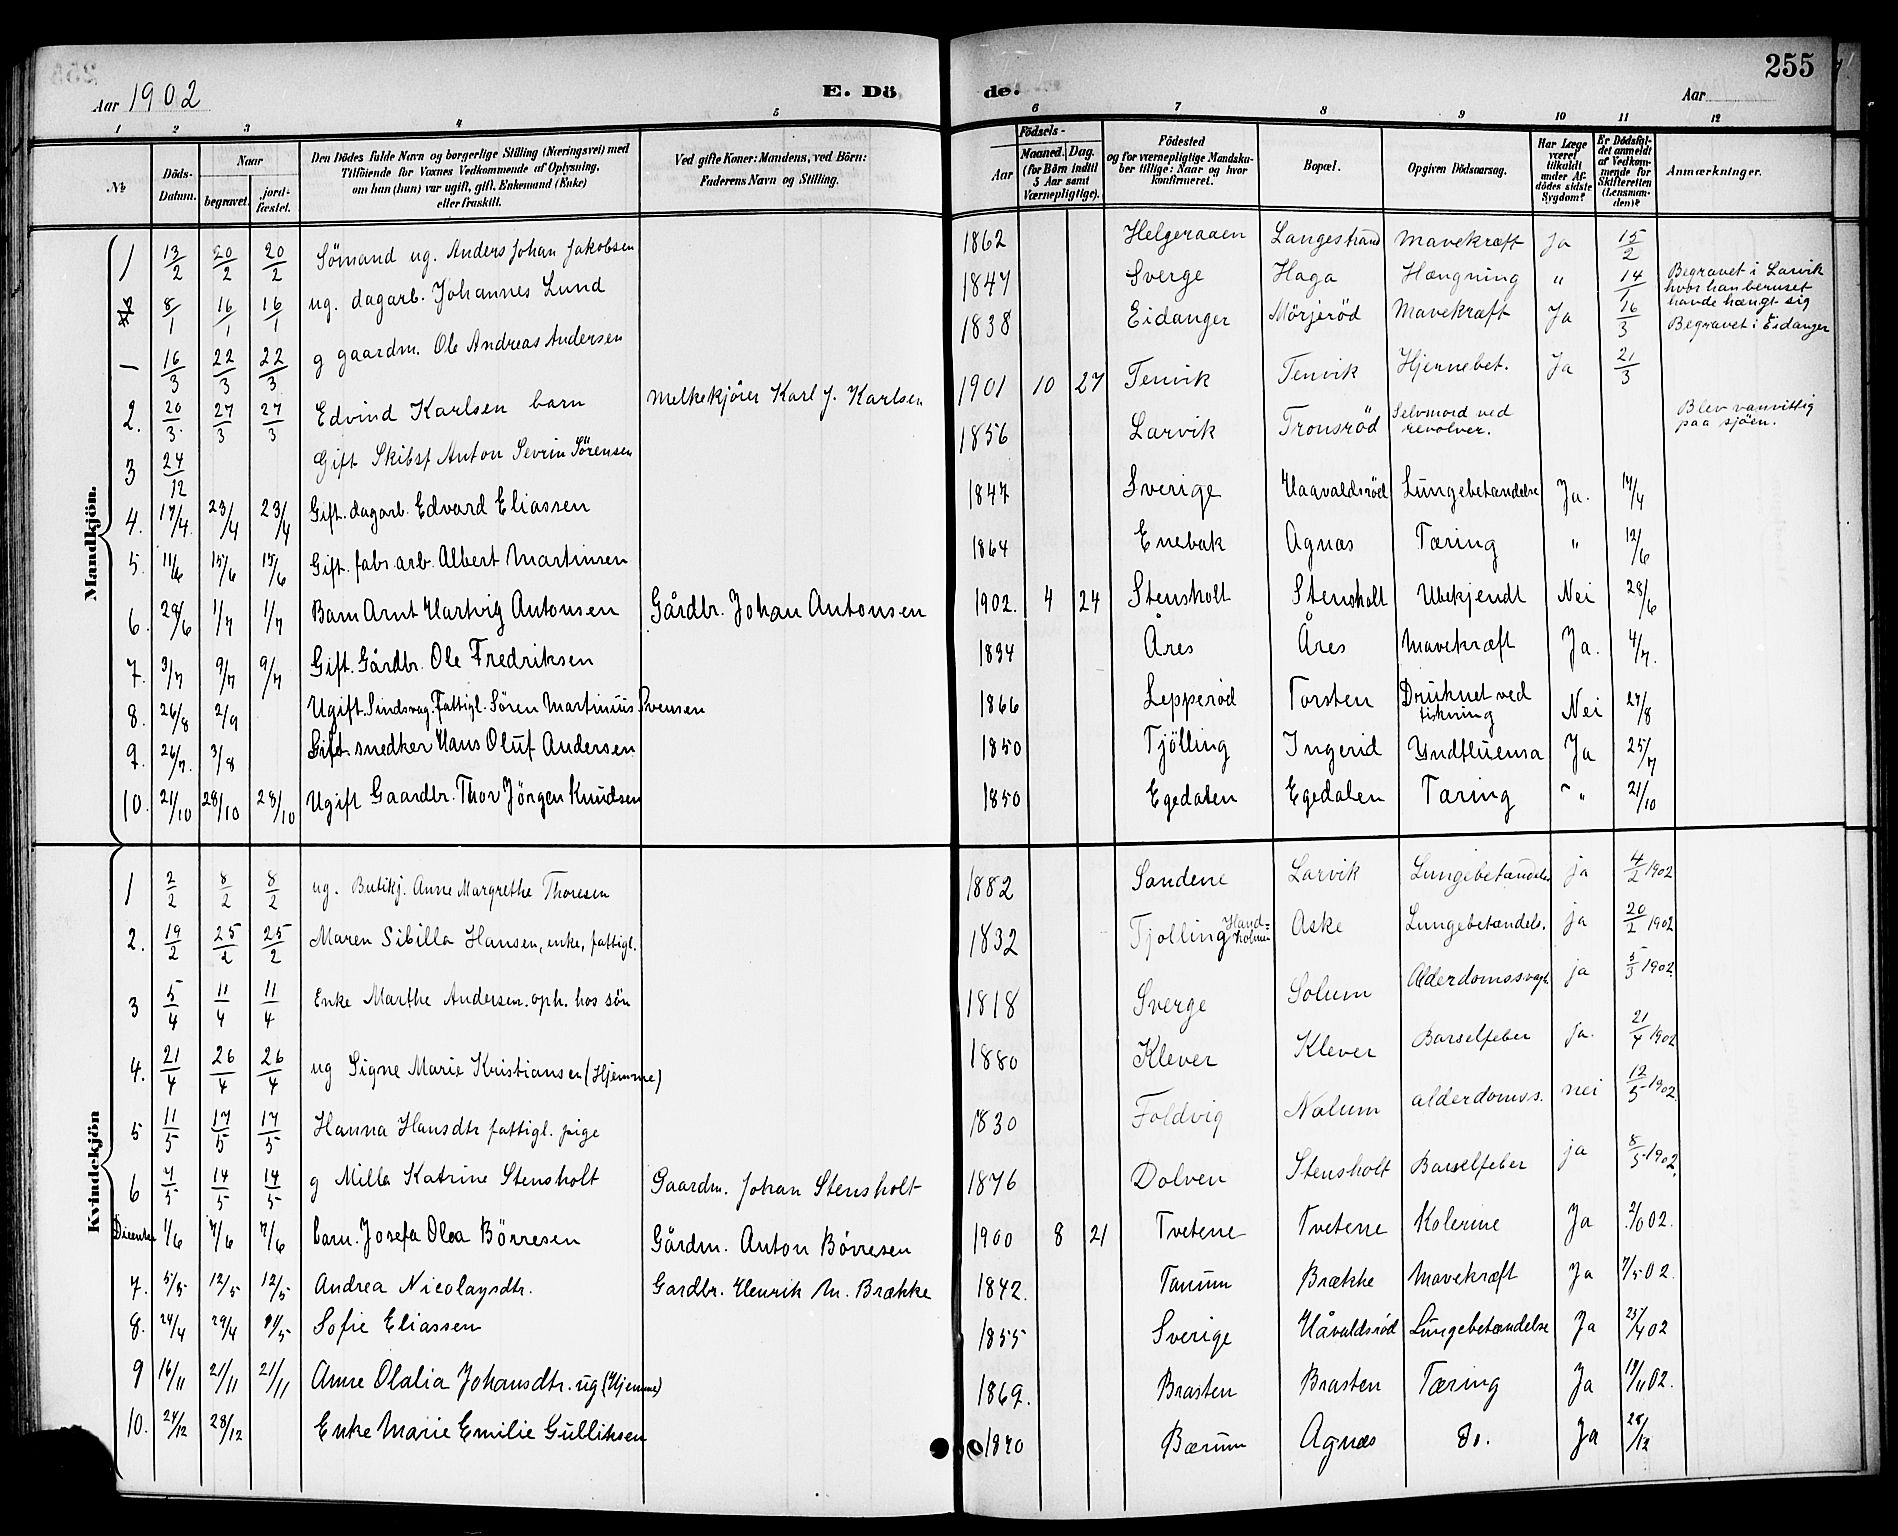 255
Aar 1902
E. Dö
de.
Aar
1 2 3 4 5 6 7 8 9 10 11 12
No
Döds-Datum.
Naar
begravet.
jord-fæstet.
Den Dödes fulde Navn og borgerlige Stilling (Næringsvei) med
Tilföiende for Voxnes Vedkommende af Oplysning,
om han (hun) var ugift, gift, Enkemand (Enke)
eller fraskilt.
Ved gifte Koner: Mandens, ved Börn:
Faderens Navn og Stilling.
Födsels-
Aar
Maaned. Dag.
(for Börn indtil
5 Aar samt
Værnepligtige).
Födested
og for værnepligtige Mandska-
ber tillige: Naar og hvor
konfirmeret.
Bopæl.
Opgiven Dödsaarsag.
Har Læge
været
tilkaldt
under Af-
dödes sidste
Sygdom?
Er Dödsfal-
det anmeldt
af Vedkom-
mende for
Skifteretten
(Lensman-
den)?
Anmærkninger.
Mandkjön.
1 13/2 20/2 20/2 Sömand ug. Anders Johan Jakobsen 1862 Helgeraaen Langestrand Mavekræft Ja 15/2
8/1 16/1 16/1 ug. dagarb. Johannes Lund 1847 Sverge Haga Hængning " 14/1 Begravet i Larvik
hvor han beruset
havde hængt sig
— 16/3 22/3 22/3 g gaardm. Ole Andreas Andersen 1838 Eidanger Mörjeröd Mavekræft Ja 16/3 Begravet i Eidanger
2. 20/3 27/3 27/3 Edvind Karlsen barn Melkekjörer Karl J. Karlsen 1901 10 27 Tenvik Tenvik Hjernebet. Ja 21/3
3 24/12 Gift Skibsf Anton Sevrin Sörensen 1856 Larvik Tronsröd Selvmord ved
revolver. Blev vanvittig
paa sjöen.
4. 17/4 23/4 23/4 Gift. dagarb. Edvard Eliassen 1847 Sverige Haavaldsröd Lungebetændelse Ja. 17/4
5. 11/6 15/6 15/6 Gift. fabr. arb. Albert Martinsen 1864 Enebak Agnæs Tæring " 12/6
6. 28/6 1/7 1/7 Barn Arnt Hartvig Antonsen Gårdbr. Johan Antonsen 1902. 4 24 Stensholt Stensholt Ubekjendt Nei 28/6
7. 3/7 9/7 9/7 Gift. Gårdbr. Ole Fredriksen 1834 Åres Åres Mavekræft Ja. 4/7.
8. 26/8 2/9 Ugift. Sindsvag. Fattigl. Sören Martinius Svensen 1866 Lepperöd Torsten Druknet ved
fiskning Nei 27/8
9. 26/7. 3/8 Gift. snedker Hans Oluf Andersen 1850 Tjölling Ingerid Yndfluensa Ja 25/7
10. 21/10 28/10 28/10 Ugift Gaardbr. Thor Jörgen Knudsen 1850 Egedalen Egedalen Tæring - " 21/10
Kvindekjön
1 2/2 8/2 8/2 ug. Butikj. Anne Margrethe Thoresen 1882 Sandene Larvik Lungebetændels ja 4/2 1902
2. 19/2 25/2 25/2 Maren Sibilla Hansen, enke, fattigl. 1832 Tjolling Hand-
holmen Aske Lungebetændels. ja 20/2 1902
3 5/4 11/4 11/4 Enke Marthe Andersen. oph. hos sön 1818 Sverge Solum Alderdomssvagh. ja 5/3 1902.
4. 21/4 26/4 26/4 ug Signe Marie Kristiansen (Hjemme) 1880 Klever Klever Barselfeber ja. 21/4 1902
5 11/5 17/5 17/5 Hanna Hansdtr fattigl. pige 1830 Foldvig Nalum alderdomss. nei 12/5 1902.
6 7/5 14/5 14/5 g Milla Katrine Stensholt Gaardm. Johan Stensholt 1876 Dolven Stensholt Barselfeber ja 8/5 1902.
1/6 7/6 7/6 barn. Josefa Olea Börresen Gårdm. Anton Börresen 1900 8 21 Tvetene Tvetene Kolerine Ja 2/6 02.
7. 5/5 12/5 12/5 Andrea Nicolaysdtr. Gardbr. Henrik M. Brække 1842. Tanum Brække Mavekræft Ja 7/5 02.
8. 24/4 29/4 Sofie Eliassen 1855 Sverige Håvaldsröd Lungebetændelse Ja 25/4 02
9 16/11 21/11 21/11 Anne Olalia Johansdtr. ug (Hjemme) 1869. Brasten Brasten Tæring Ja 19/11 02.
10. 24/12 28/12 Enke Marie Emilie Gulliksen 1840 Bærum Agnæs do. Ja 28/12